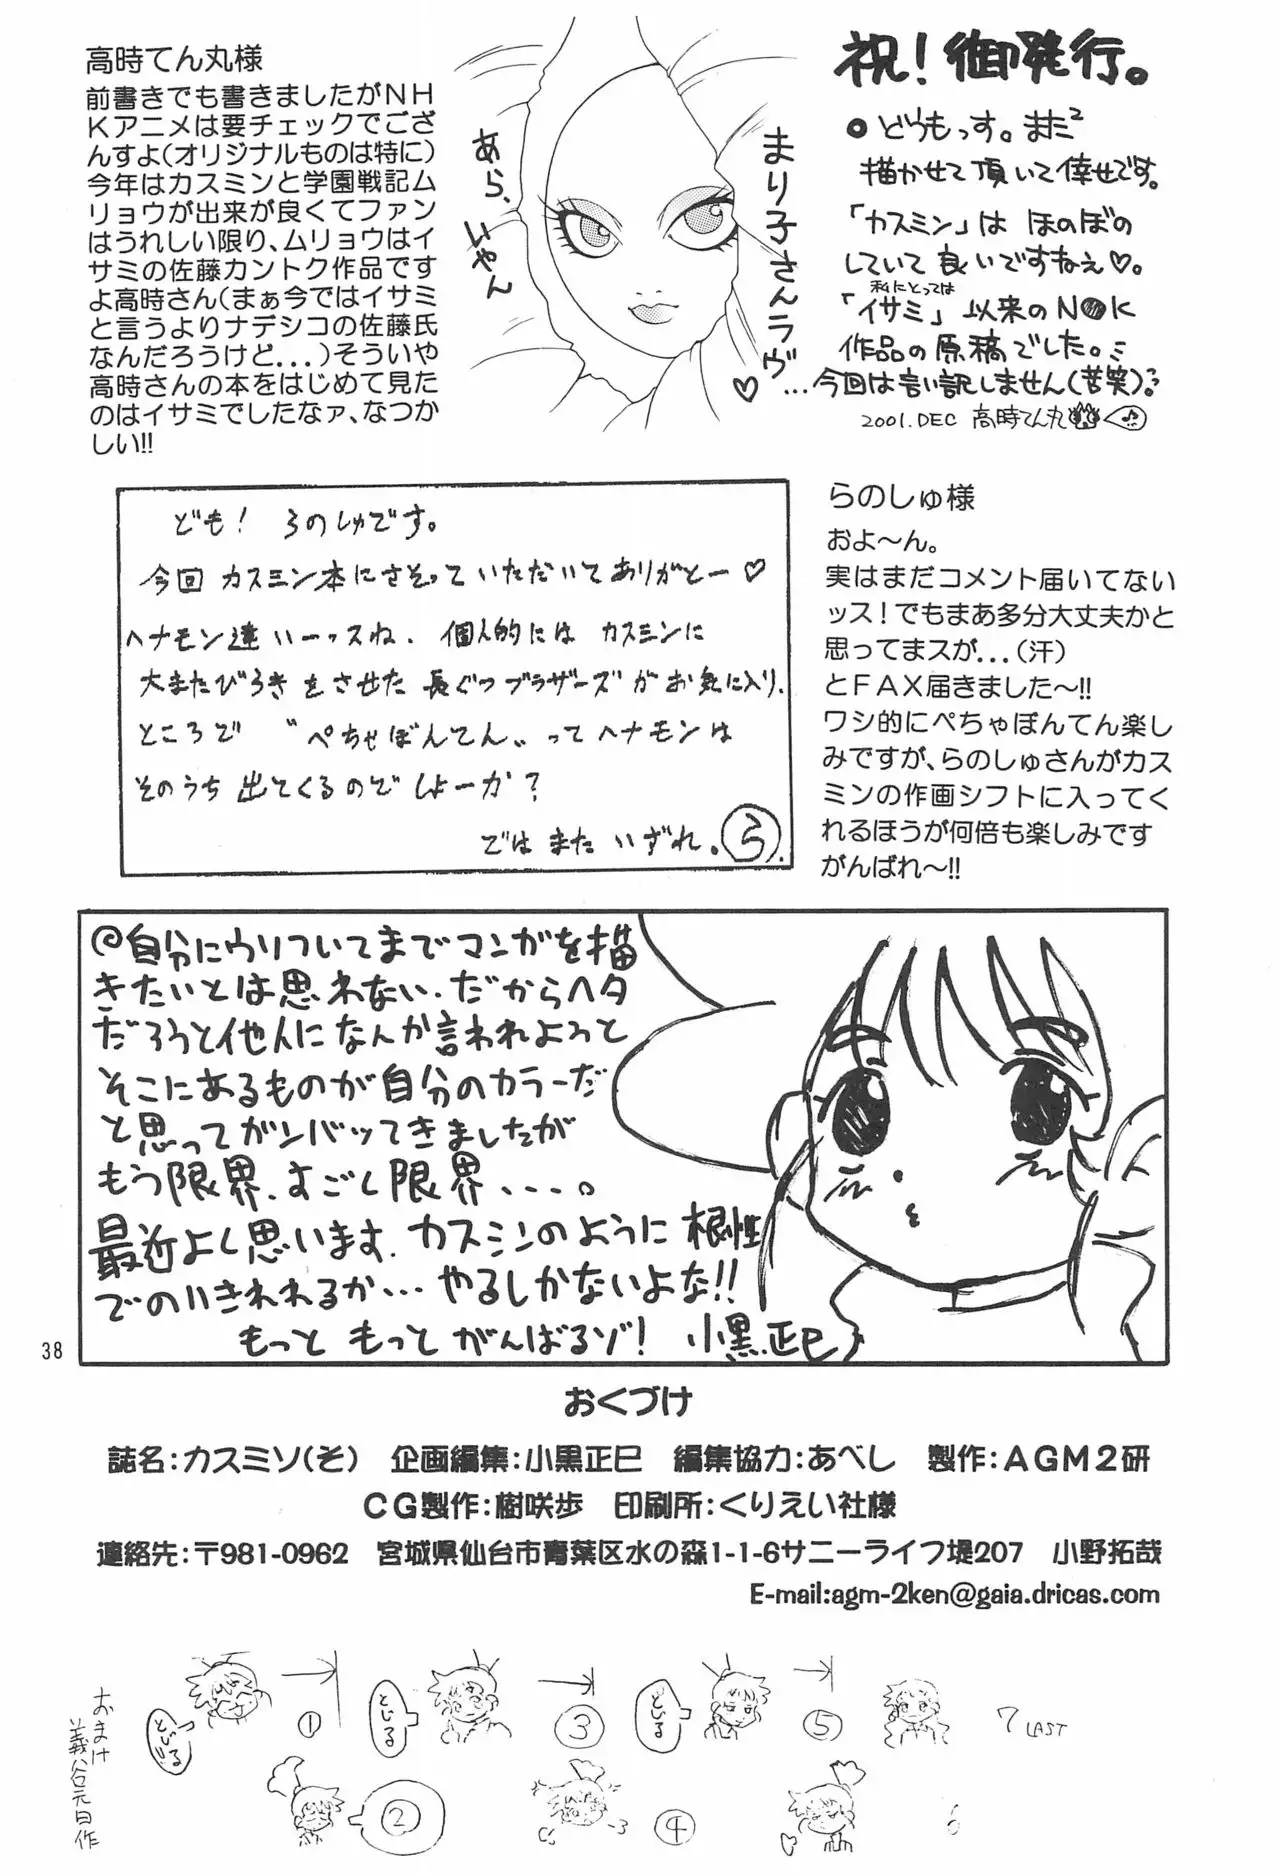 高時てん丸様
前書きでも書きましたがNH
Kアニメは要チェックでござ
んすよ(オリジナルものは特に)
今年はカスミンと学園戦記ム
リョウが出来が良くてファン
はうれしい限り、ムリョウはイ
サミの佐藤カントク作品です
よ高時さん(まぁ今ではイサミ
と言うよりナデシコの佐藤氏
なんだろうけど...)そういや
高時さんの本をはじめて見た
のはイサミでしたなァ、なつか
しい!!
あら、いやん
まり子さんラヴ♡
祝!御発行。
●どうもっす。また²
描かせて頂いて倖せです。
「カスミン」は ほのぼの
していて 良いですねえ♡。
私にとっては
「イサミ」以来のN●K
作品の原稿でした。
...今回は言い訳しません(苦笑)
2001.DEC 高時てん丸
ども! らのしゅです。
今回 カスミン本にさそっていただいてありがとー♡
ヘナモン達い一ッスね、個人的には カスミンに
大またびらきをさせた 長ぐつブラザーズがお気に入り、
ところで 〝ぺちゃぼんてん〟ってヘナモンは
そのうち 出てくるのでしょーか?
ではまた いずれ。ら
らのしゅ様
およ〜ん。
実はまだコメント届いてない
ッス!でもまあ多分大丈夫かと
思ってまスが...(汗)
とFAX届きました〜!!
ワシ的にぺちゃぼんてん楽し
みですが、らのしゅさんがカス
ミンの作画シフトに入ってく
れるほうが何倍も楽しみです
がんばれ〜!!
自分にウソついてまでマンガを描
きたいとは思わない。だからヘタ
だろうと他人になんか言われようと
そこにあるものが自分のカラーだ
と思ってガンバッてきましたが
もう限界、すごく限界、、、、。
最近よく思います。カスミンのように根性
でのりきれるか...やるしかないよな!!
もっと もっと がんばるゾ! 小黒正巳
38
おくづけ
誌名:カスミソ(そ) 企画編集:小黒正巳 編集協力:あべし 製作:AGM2研
CG製作:樹咲歩 印刷所:くりえい社様
連絡先:〒981-0962 宮城県仙台市青葉区水の森1-1-6サニーライフ堤207 小野拓哉
E-mail:agm-2ken@gaia.dricas.com
おまけ
義谷元日作
といれ!!
①
といれ
③
といれ
⑤
7 LAST
②
④
6